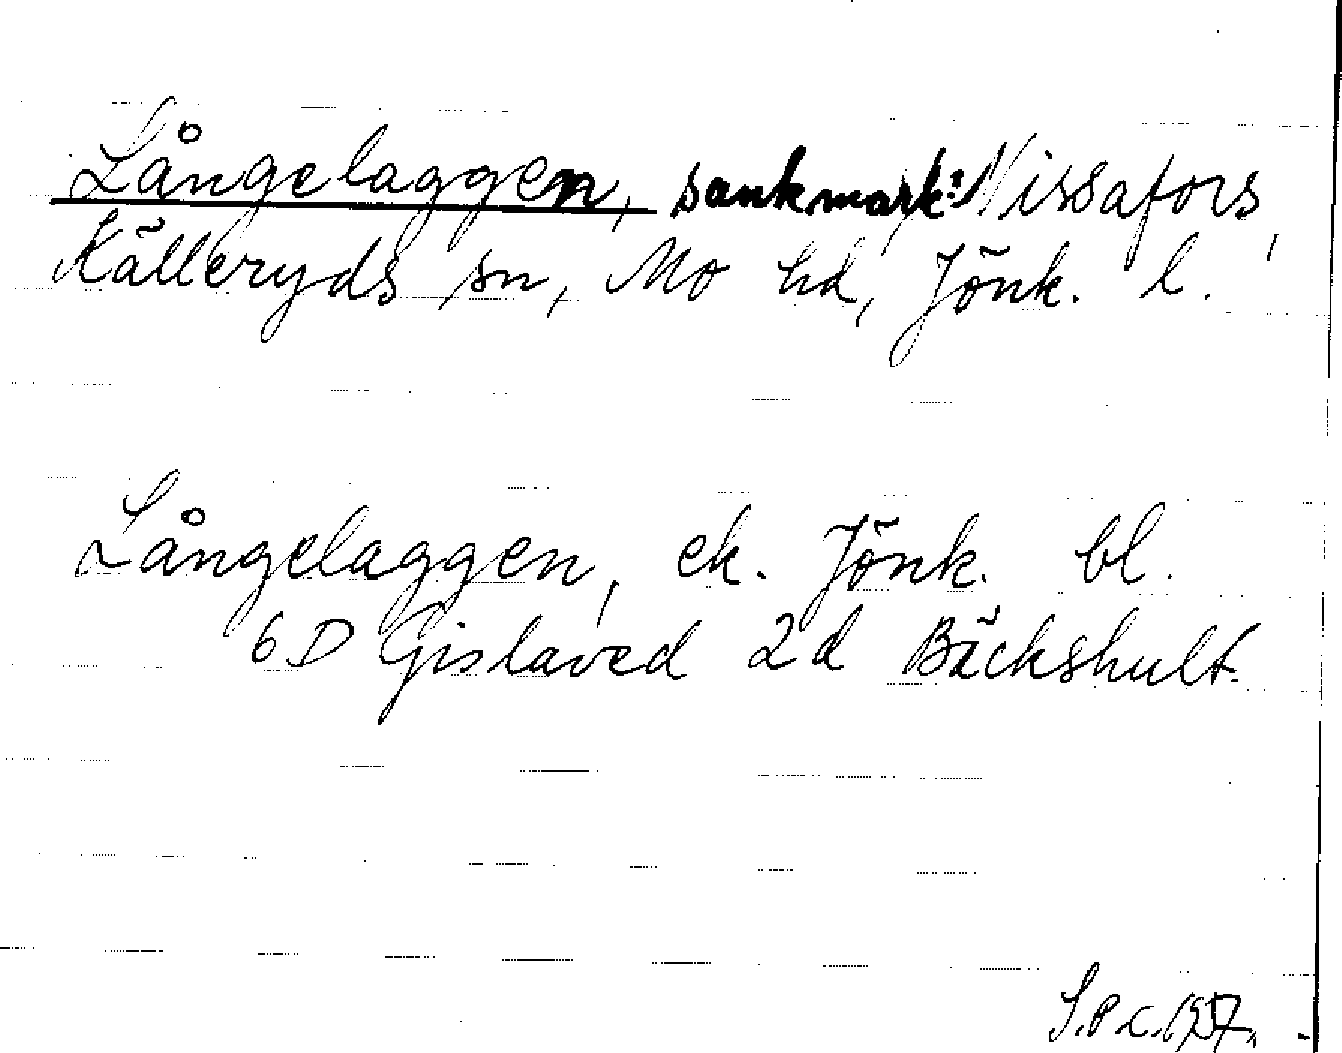 Långelaggen, sankmark: Nissafors,
Källeryds sn, Mo hd, Jönk. l.
Långelaggen, ek. Jönk. bl.
6D Gislaved 2d Bäckshult.